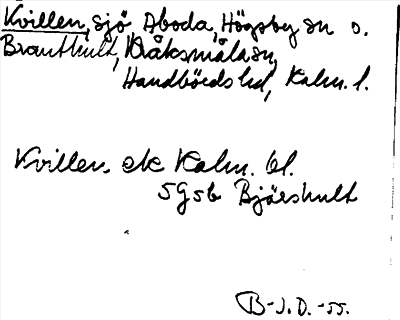 Kvillen, sjö Aboda, Högsby sn o.
Branthult, Kråksmåla sn,
Handbörds hd, Kalm. l.
Kvillen ek Kalm. bl.
5G5b Bjärshult
B-J.D.-55.